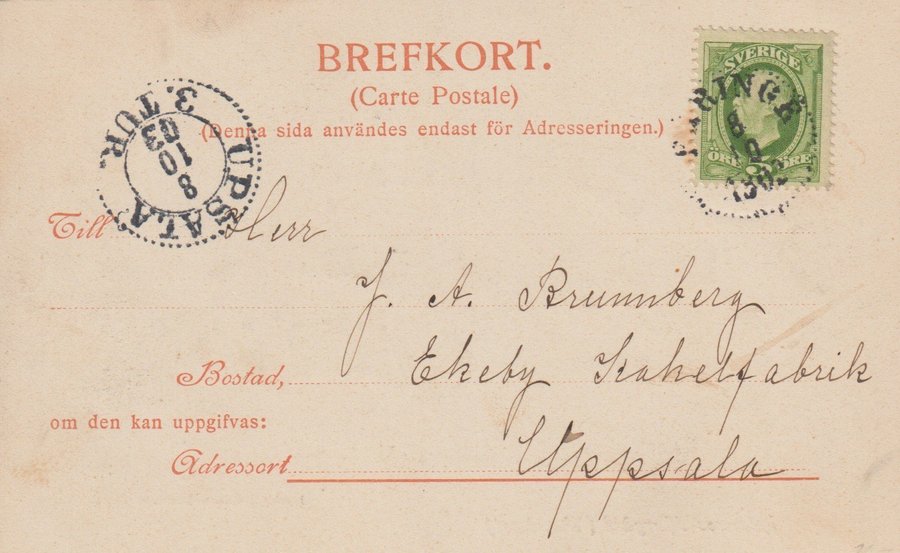 BREFKORT.
(Carte Postale)
(Denna sida användes endast för Adresseringen.)
UPSALA
3. TUR.
8
10
03
SVERIGE
5
ÖRE ÖRE
Till Herr
J. A. Brunnberg
Bostad, Ekeby Kakelfabrik
om den kan uppgifvas:
Adressort Uppsala